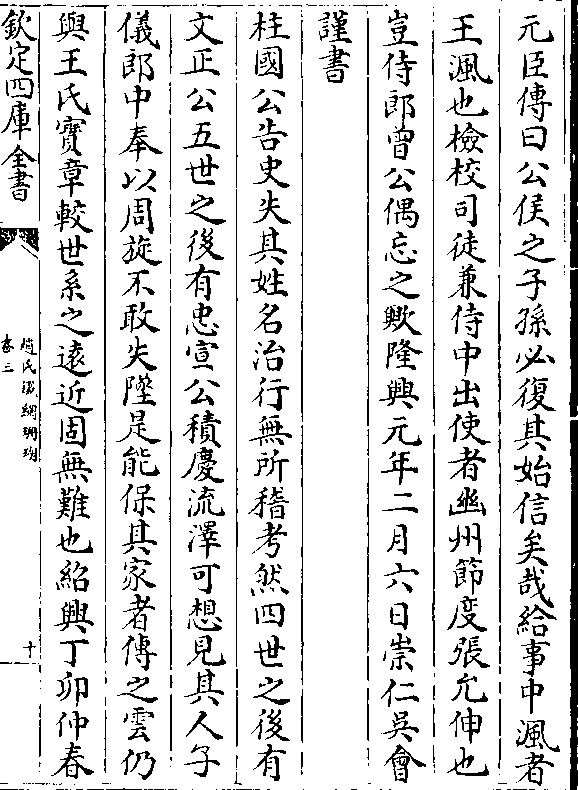 元臣傳曰公侯之子孫必復其始信矣哉給事中渢者
王渢也檢校司徒兼侍中出使者幽州節度張允伸也
豈侍郎曾公偶忘之歟隆興元年二月六日崇仁吳曾
謹書
柱國公告史失其姓名治行無所稽考然四世之後有
文正公五世之後有忠宣公積慶流澤可想見其人子
儀郎中奉以周旋不敢失墜是能保其家者傳之雲仍
與王氏寳章較世系之遠近固無難也紹興丁卯仲春
欽定四庫全書
趙氏鐵網珊瑚
卷三
十